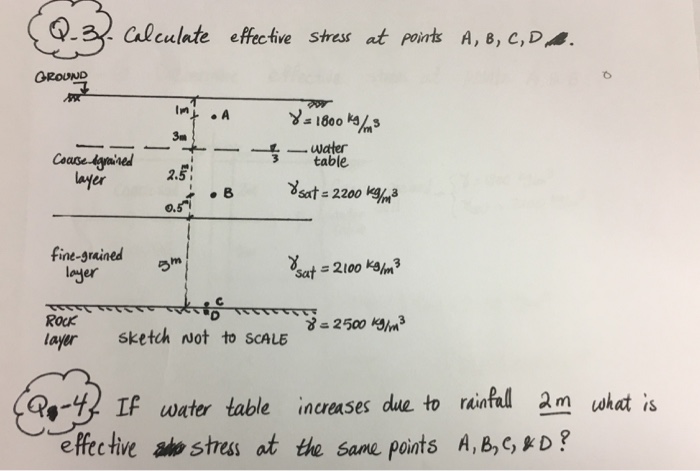 Q-3. Calculate effective stress at points A, B, C, D.
GROUND
1m
• A
γ = 1800 kg/m³
3m
water
table
Coarse-grained
layer
2.5m
• B
γsat = 2200 kg/m³
0.5m
fine-grained
layer
5m
γsat = 2100 kg/m³
• C
• D
ROCK
layer
γ = 2500 kg/m³
sketch Not to SCALE
Q-4 If water table increases due to rainfall 2m what is
effective stress at the same points A, B, C, & D?